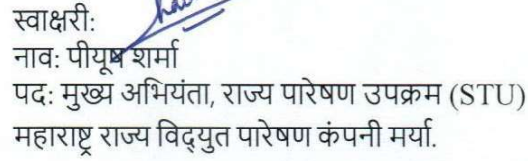 स्वाक्षरी:
नाव: पीयूष शर्मा
पद: मुख्य अभियंता, राज्य पारेषण उपक्रम (STU)
महाराष्ट्र राज्य विद्युत पारेषण कंपनी मर्या.